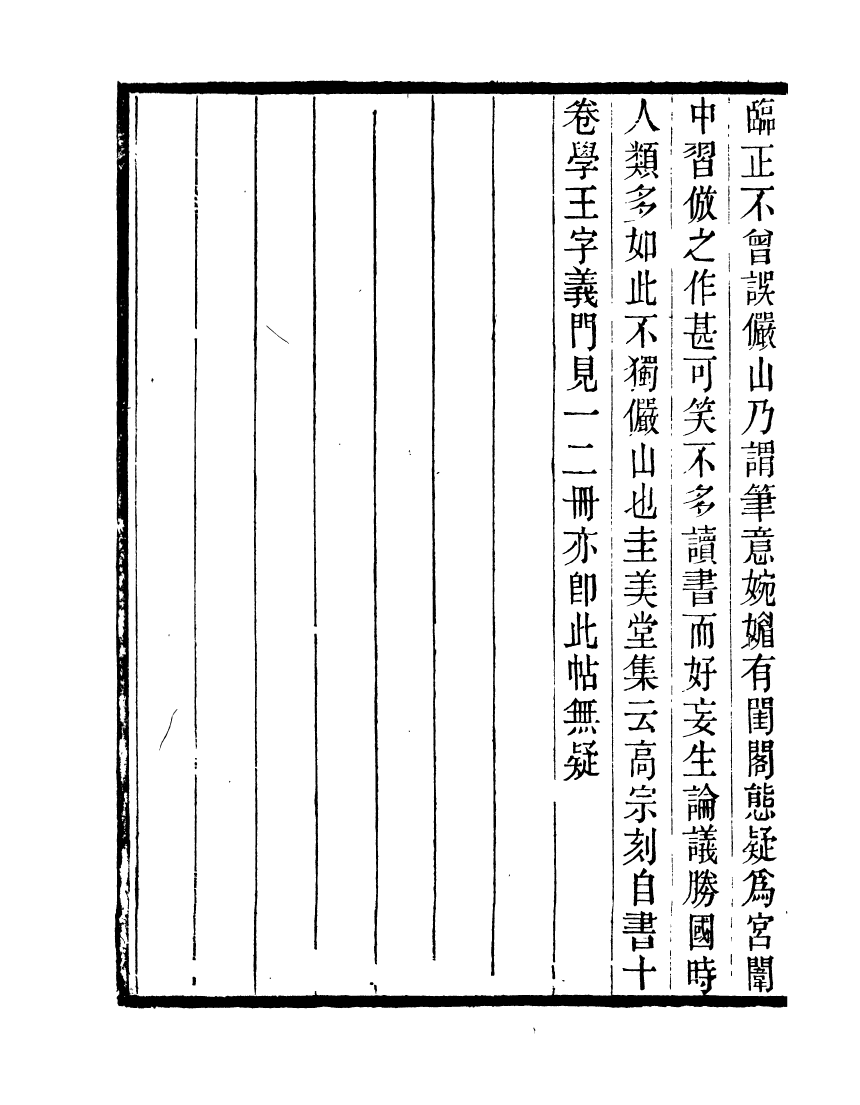 臨正不曾誤儼山乃謂筆意婉媚有閨閣態疑爲宮闈
中習倣之作甚可笑不多讀書而好妄生論議勝國時
人類多如此不獨儼山也圭美堂集云高宗刻自書十
卷學王字義門見一二冊亦卽此帖無疑